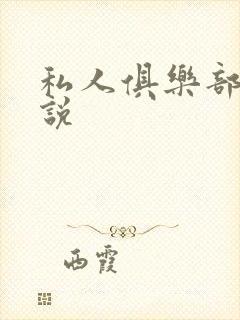 私人俱樂部
說
西霞